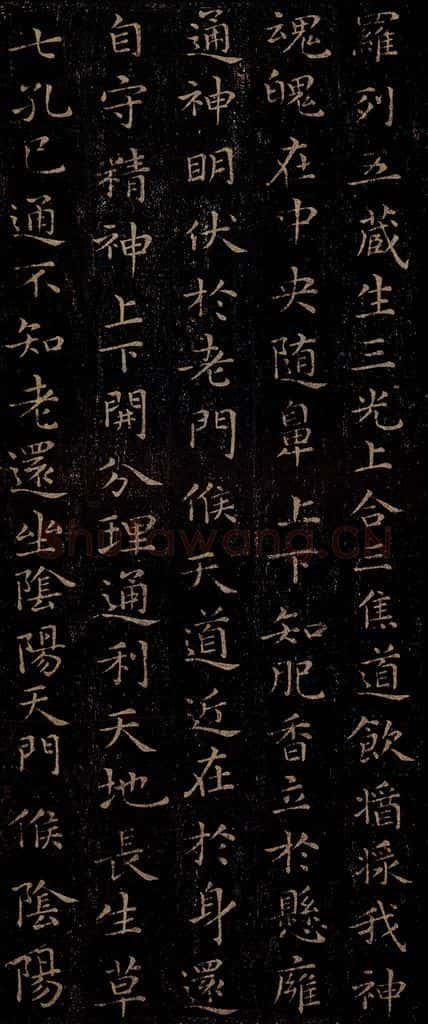 羅列五藏生三光上合三焦道飲醬漿我神
魂魄在中央随鼻上下知肥香立於懸廱
通神明伏於老門候天道近在於身還
自守精神上下開分理通利天地長生草
七孔已通不知老還坐陰陽天門候陰陽
shufawang.CN